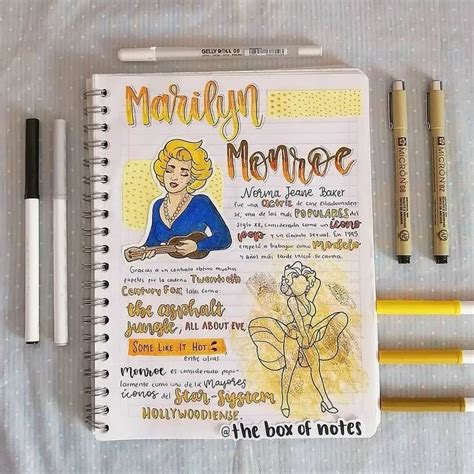 GELLY ROLL 08
Marilyn
Monroe
Norma Jeane Baker
fue una actriz de cine estadouniden-
se, una de las más POPULARES del
siglo XX, considerada como un ícono
pop y un símbolo sexual. En 1945
empezó a trabajar como Modelo
y años más tarde inició su carrera.
Gracias a un contrato obtuvo muchos
papeles por la cadena Twentieth
Century Fox, tales como:
the asphalt
jungle, ALL ABOUT EVE,
SOME LIKE IT HOT
entre otras.
Monroe es considerada popu-
larmente como uno de los Mayores
íconos del Star-System
HOLLYWOODIENSE.
@the box of notes
MICRON 08
MICRON